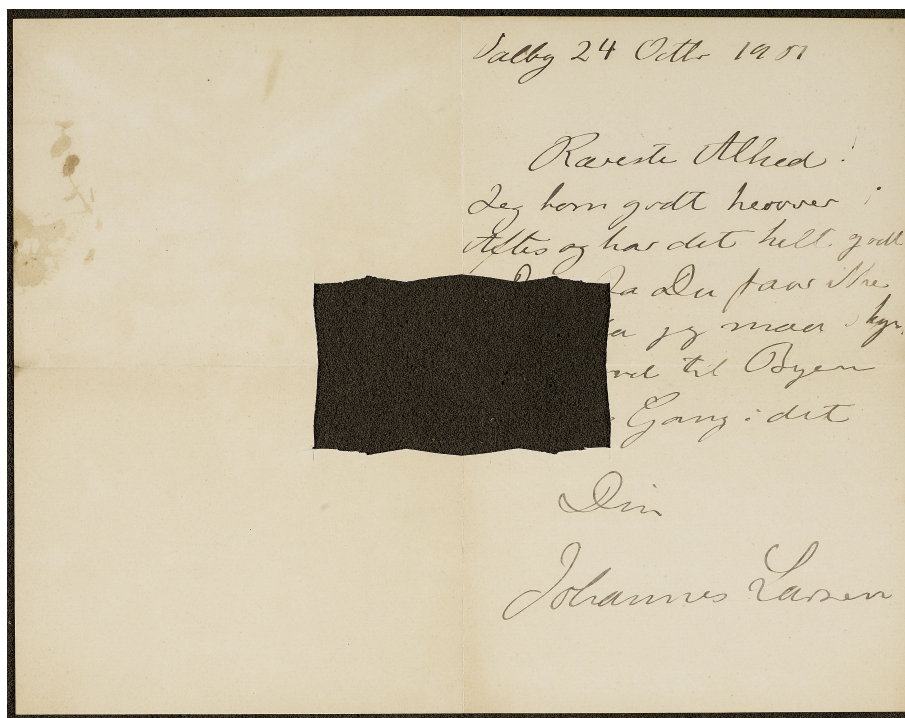 Valby 24 Octbr 1901
Kæreste Alhed!
Jeg kom godt herover i
Aftes og har det helt godt
Du faar ikke
jeg maa
til Byen
Gang i det
Din
Johannes Larsen